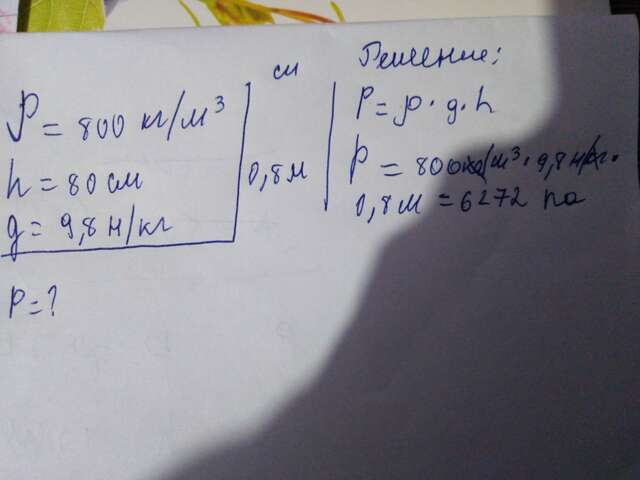 ρ = 800 кг/м³
h = 80 см
g = 9,8 н/кг
P = ?
си
0,8м
Решение:
P = ρ · g · h
P = 800кг/м³ · 9,8 н/кг ·
0,8м = 6272 па